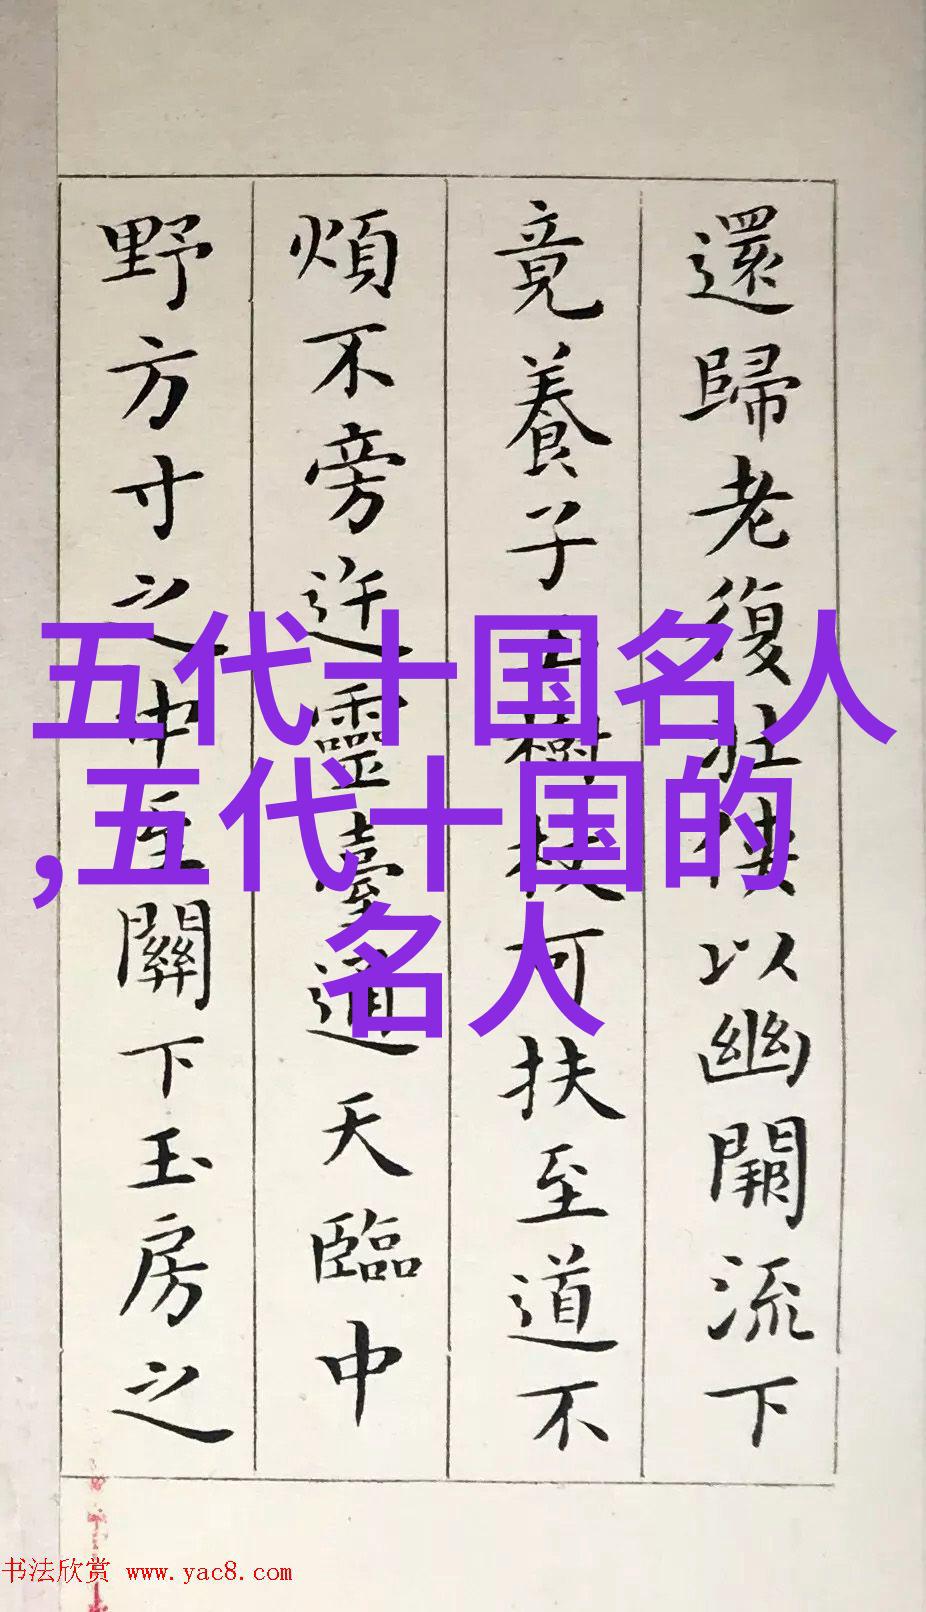 還歸老復壯俠以幽闕流下
竟養子樹杖可扶至道不
煩不旁迕靈臺通天臨中
野方寸之中至關下玉房之
五代十国名人
,五代十国的
名人
书法欣赏 www.yac8.com